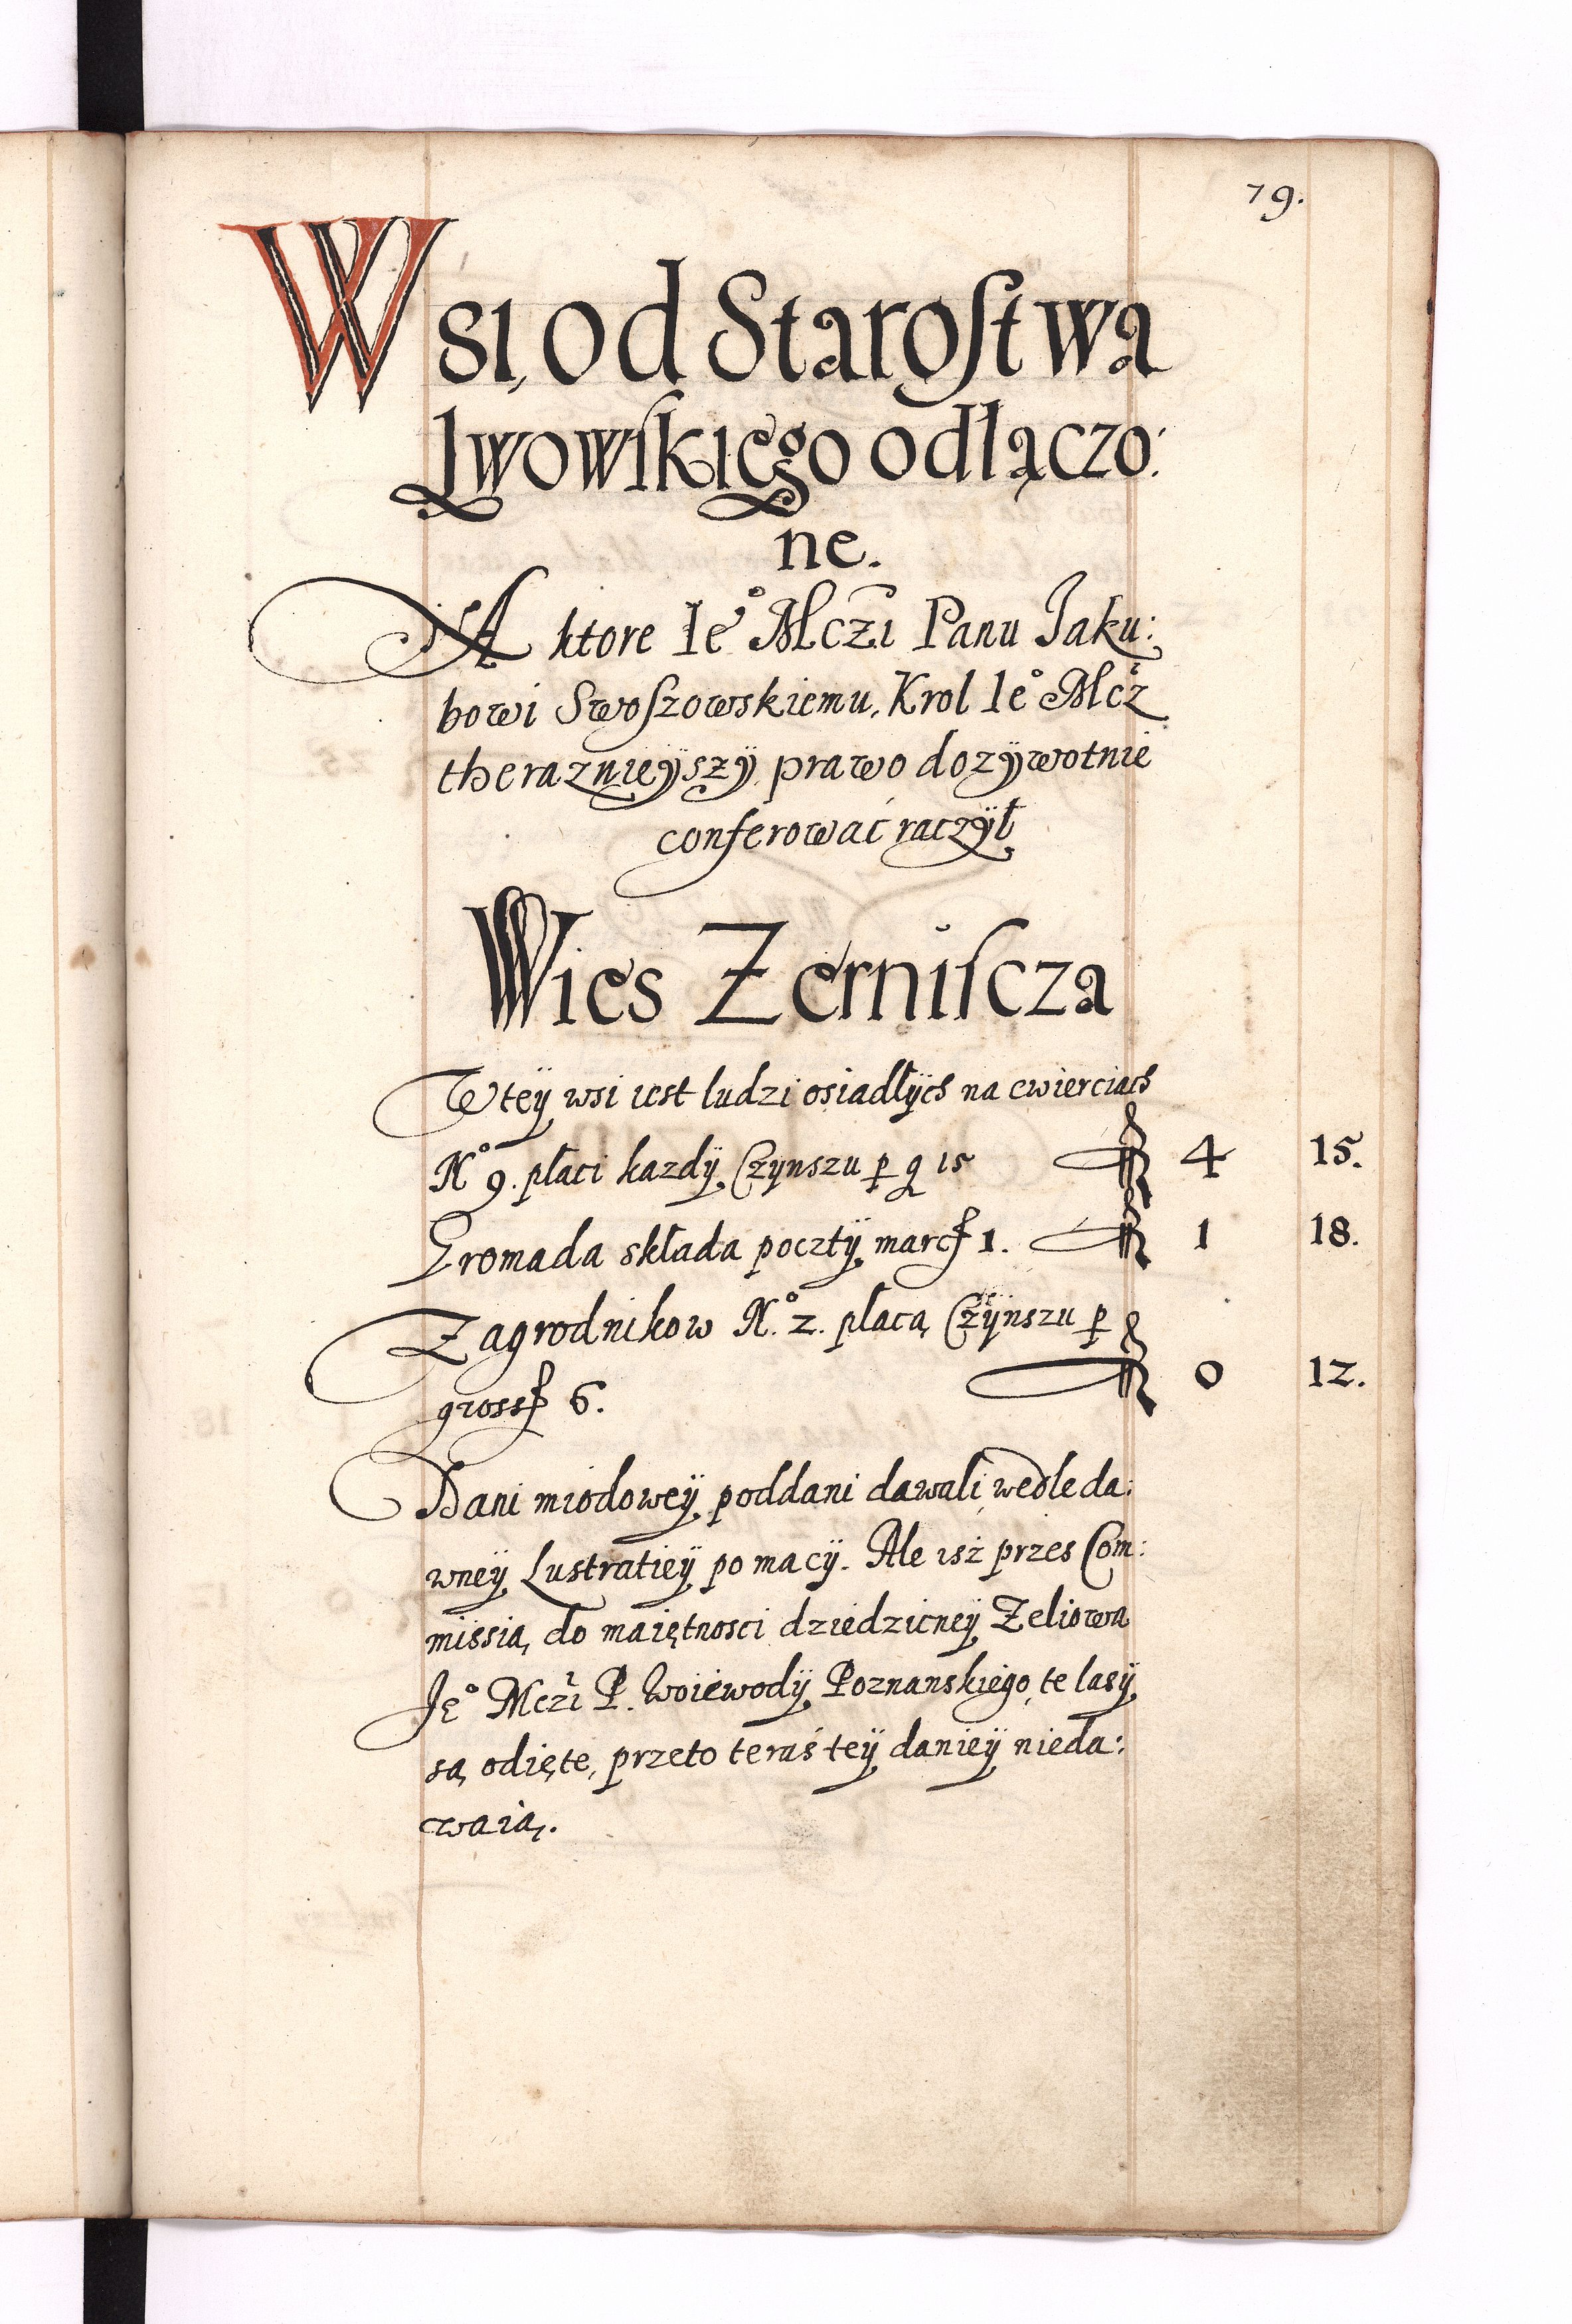 79.
Wsi, od Staroſtwa
Lwowſkiego odłączo:
ne.
A ktore Ie° Mczi Panu Jaku:
bowi Swoſzowskiemu, Krol Ie° Mcz
theraznieÿszÿ prawo dozÿwotnie
conferować raczÿł
Wies Zerniſcza
W teÿ wsi iest ludzi osiadłÿch na cwierciach
N° 9. płaci kazdÿ Czynszu p g 15 fl 4 15.
Gromada składa pocztÿ marcſ 1. fl 1 18.
Zagrodnikow N.° 2. płacą Czÿnszu p
grossſ 6. fl 0 12.
Dani miodoweÿ poddani dawali wedle da:
wneÿ Lustratieÿ po macÿ. Ale isz przes Com:
missią do maiętnosci dziedziczneÿ Zeliowa
Je° Mczi P. Woiewodÿ Poznanskiego te lasÿ
są odięte, przeto teraś teÿ danieÿ nieda:
waią.